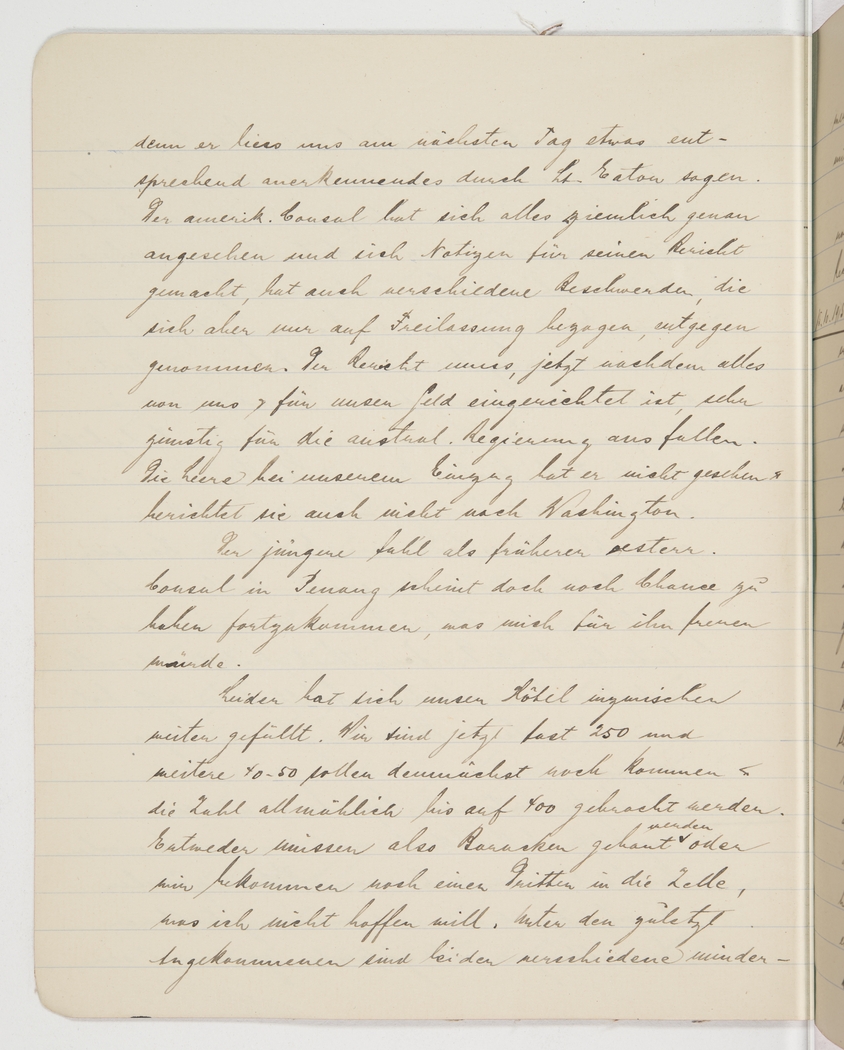 denn er liess uns am nächsten Tag etwas ent-
sprechend anerkennendes durch Lt. Eaton sagen.
Der amerik. Consul hat sich alles ziemlich genau
angesehen und sich Notizen für seinen Bericht
gemacht, hat auch verschiedene Beschwerden, die
sich aber nur auf Freilassung bezogen, entgegen
genommen. Der Bericht muss, jetzt nachdem alles
von uns & für unser Geld eingerichtet ist, sehr
günstig für die austral. Regierung ausfallen.
Die Leere bei unserem Einzug hat er nicht gesehen &
berichtet sie auch nicht nach Washington.
Der jüngere als früherer oesterr.
Consul in Penang scheint doch noch Chance zu
haben fortzukommen, was mich für ihn freuen
würde.
Leider hat sich unser Hôtel inzwischen
weiter gefüllt. Wir sind jetzt fast 250 und
weitere 40-50 sollen demnächst noch kommen &
die Zahl allmählich bis auf 400 gebracht werden.
Entweder müssen also Baracken gebaut werden oder
wir bekommen noch einen Dritten in die Zelle,
was ich nicht hoffen will. Unter den zuletzt
Angekommenen sind leider verschiedene minder-